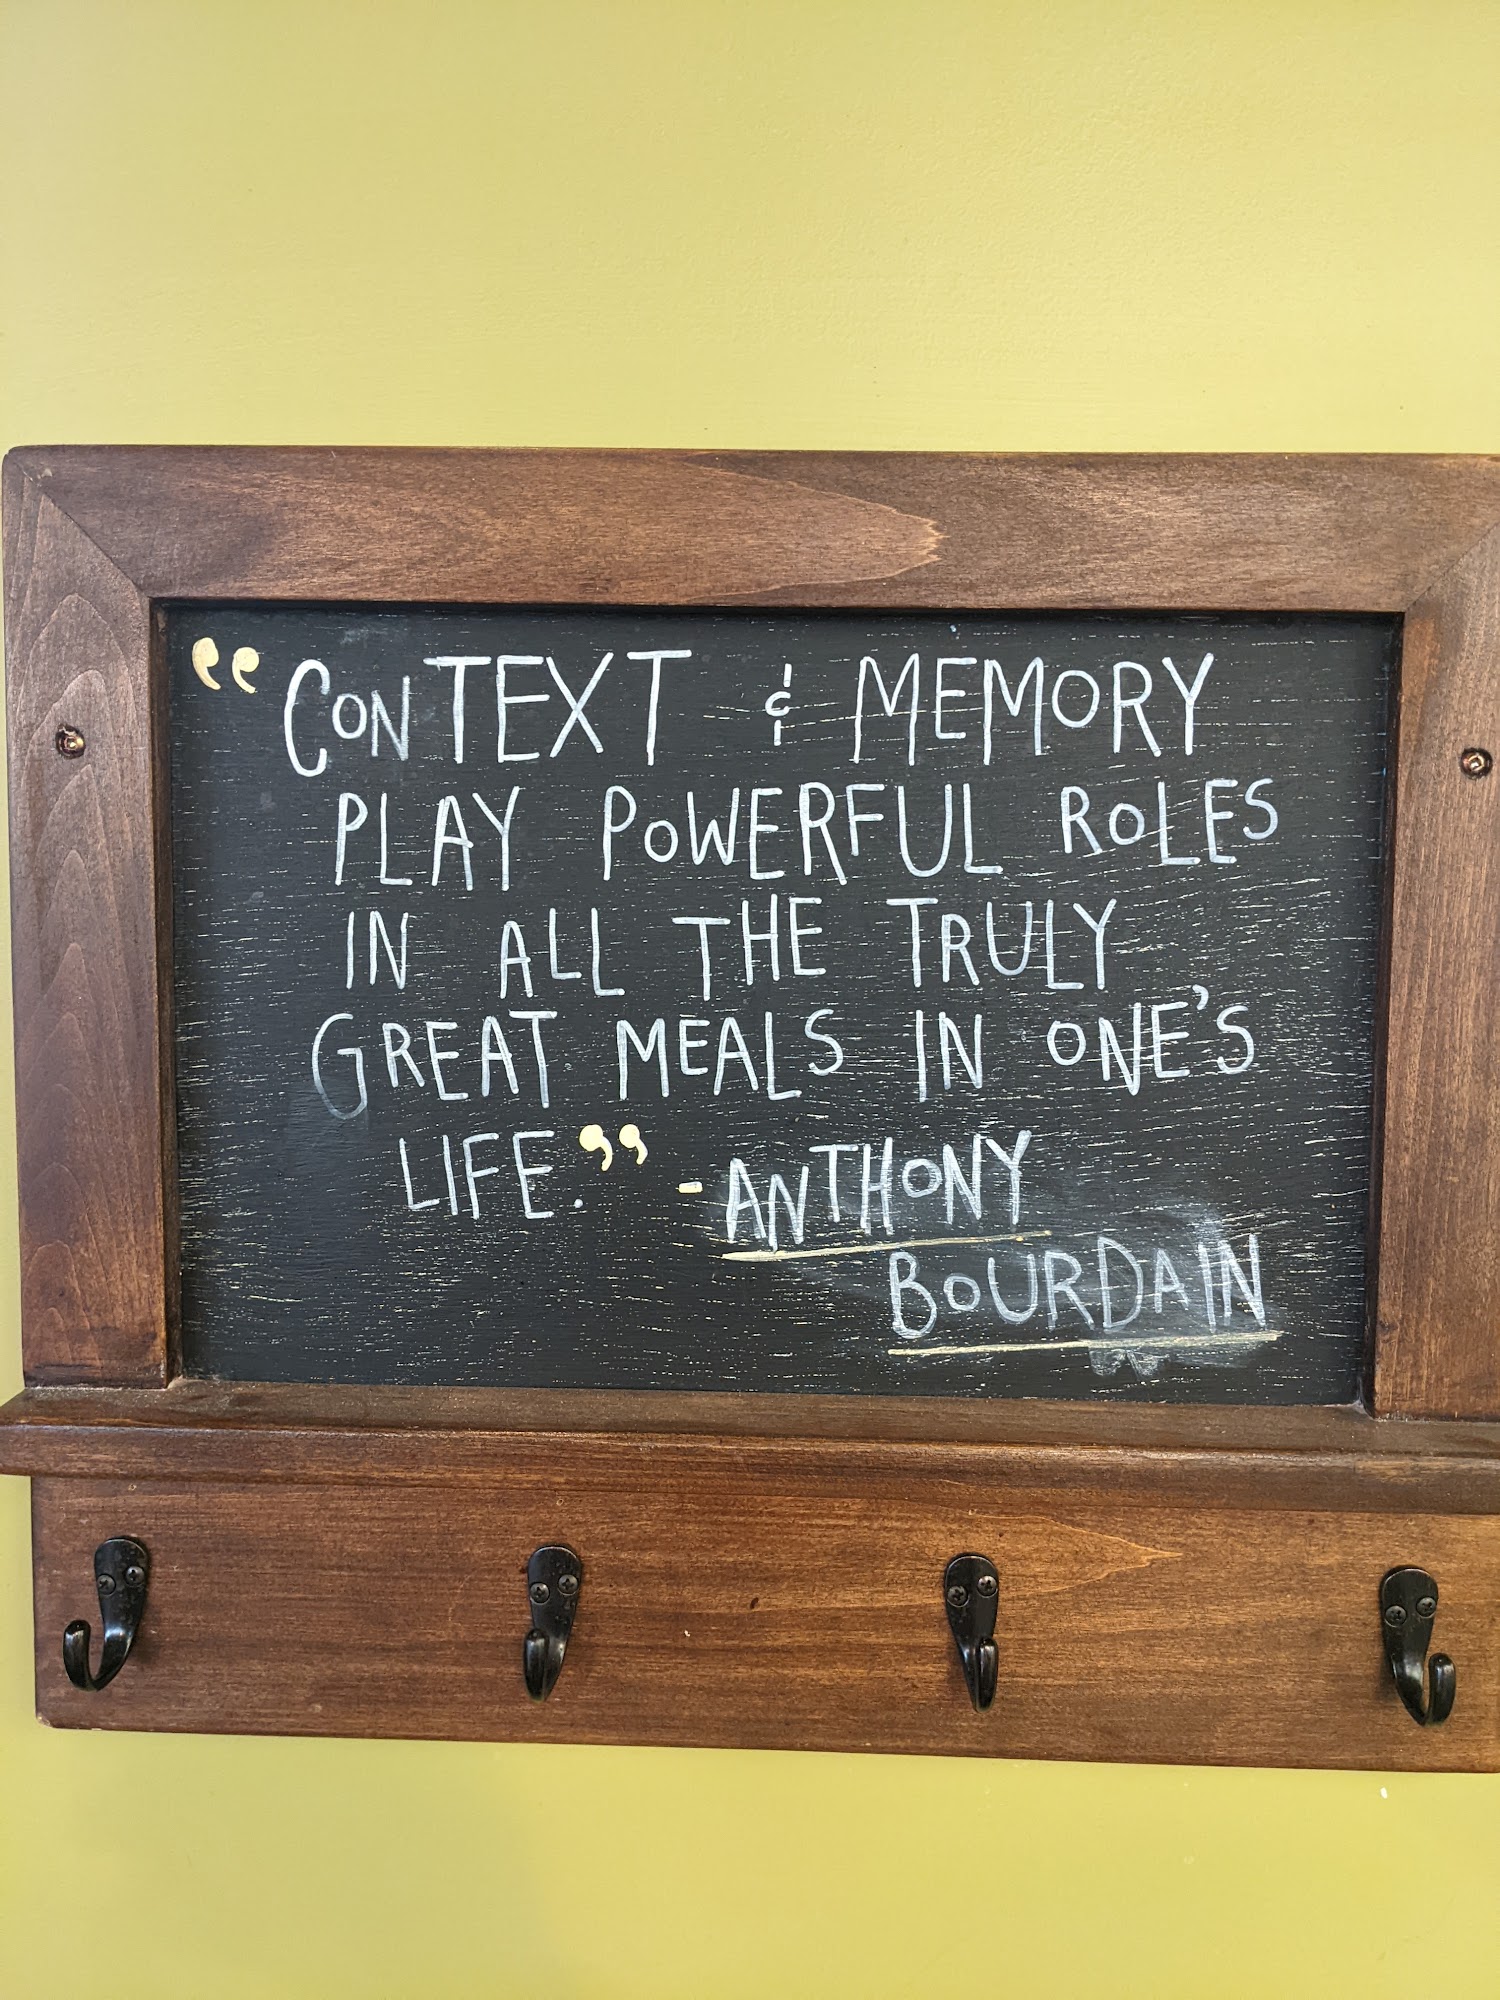 “CONTEXT & MEMORY
PLAY POWERFUL ROLES
IN ALL THE TRULY
GREAT MEALS IN ONE’S
LIFE.” - ANTHONY
BOURDAIN